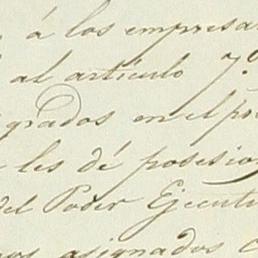 á los empresa
al artículo 7.º
grados en el pr
les dé posesio
del Poder Ejecuti
nos asignados c